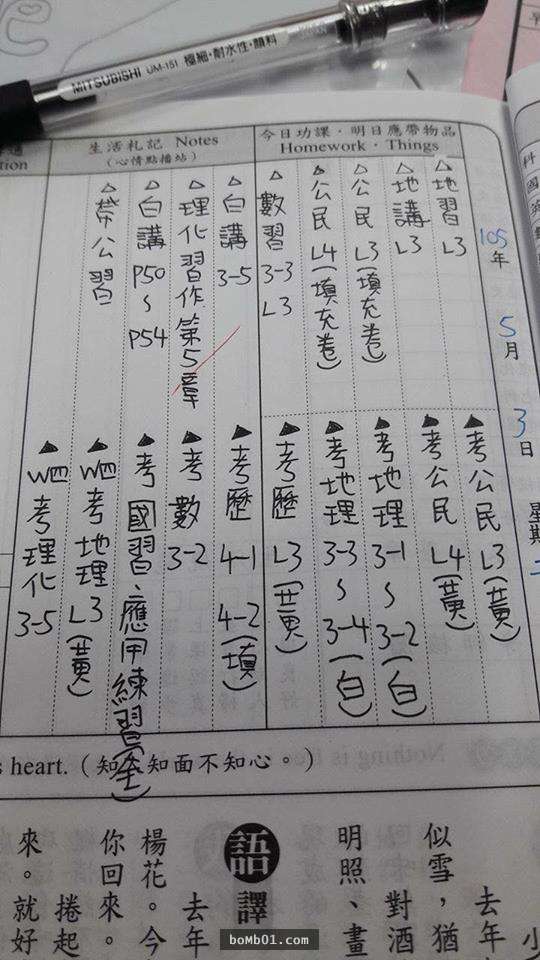 MITSUBISHI UM-151 極細・耐水性・顏料
今日功課・明日應帶物品
Homework・Things
生活札記 Notes
(心情點播站)
tion
105年
5月
3日
星期二
△地習 L3
△地講 L3
△公民 L3(填充卷)
△公民 L4(填充卷)
△數習 3-3 L3
△白講 3-5
△理化習作第5章
△白講 P50~P54
△帶公習
▲考公民 L3(黃)
▲考公民 L4(黃)
▲考地理 3-1~3-2(白)
▲考地理 3-3~3-4(白)
▲考歷 L3(黃)
▲考歷 4-1 4-2(填)
▲考數 3-2
▲考國習、應用練習(全)
▲W四考地理 L3(黃)
▲W四考理化 3-5
s heart.(知人知面不知心。)
去年
似雪,猶
對酒
明照、畫
語譯
去年
楊花。今
你回來。
捲起
來。就好
boMb01.com